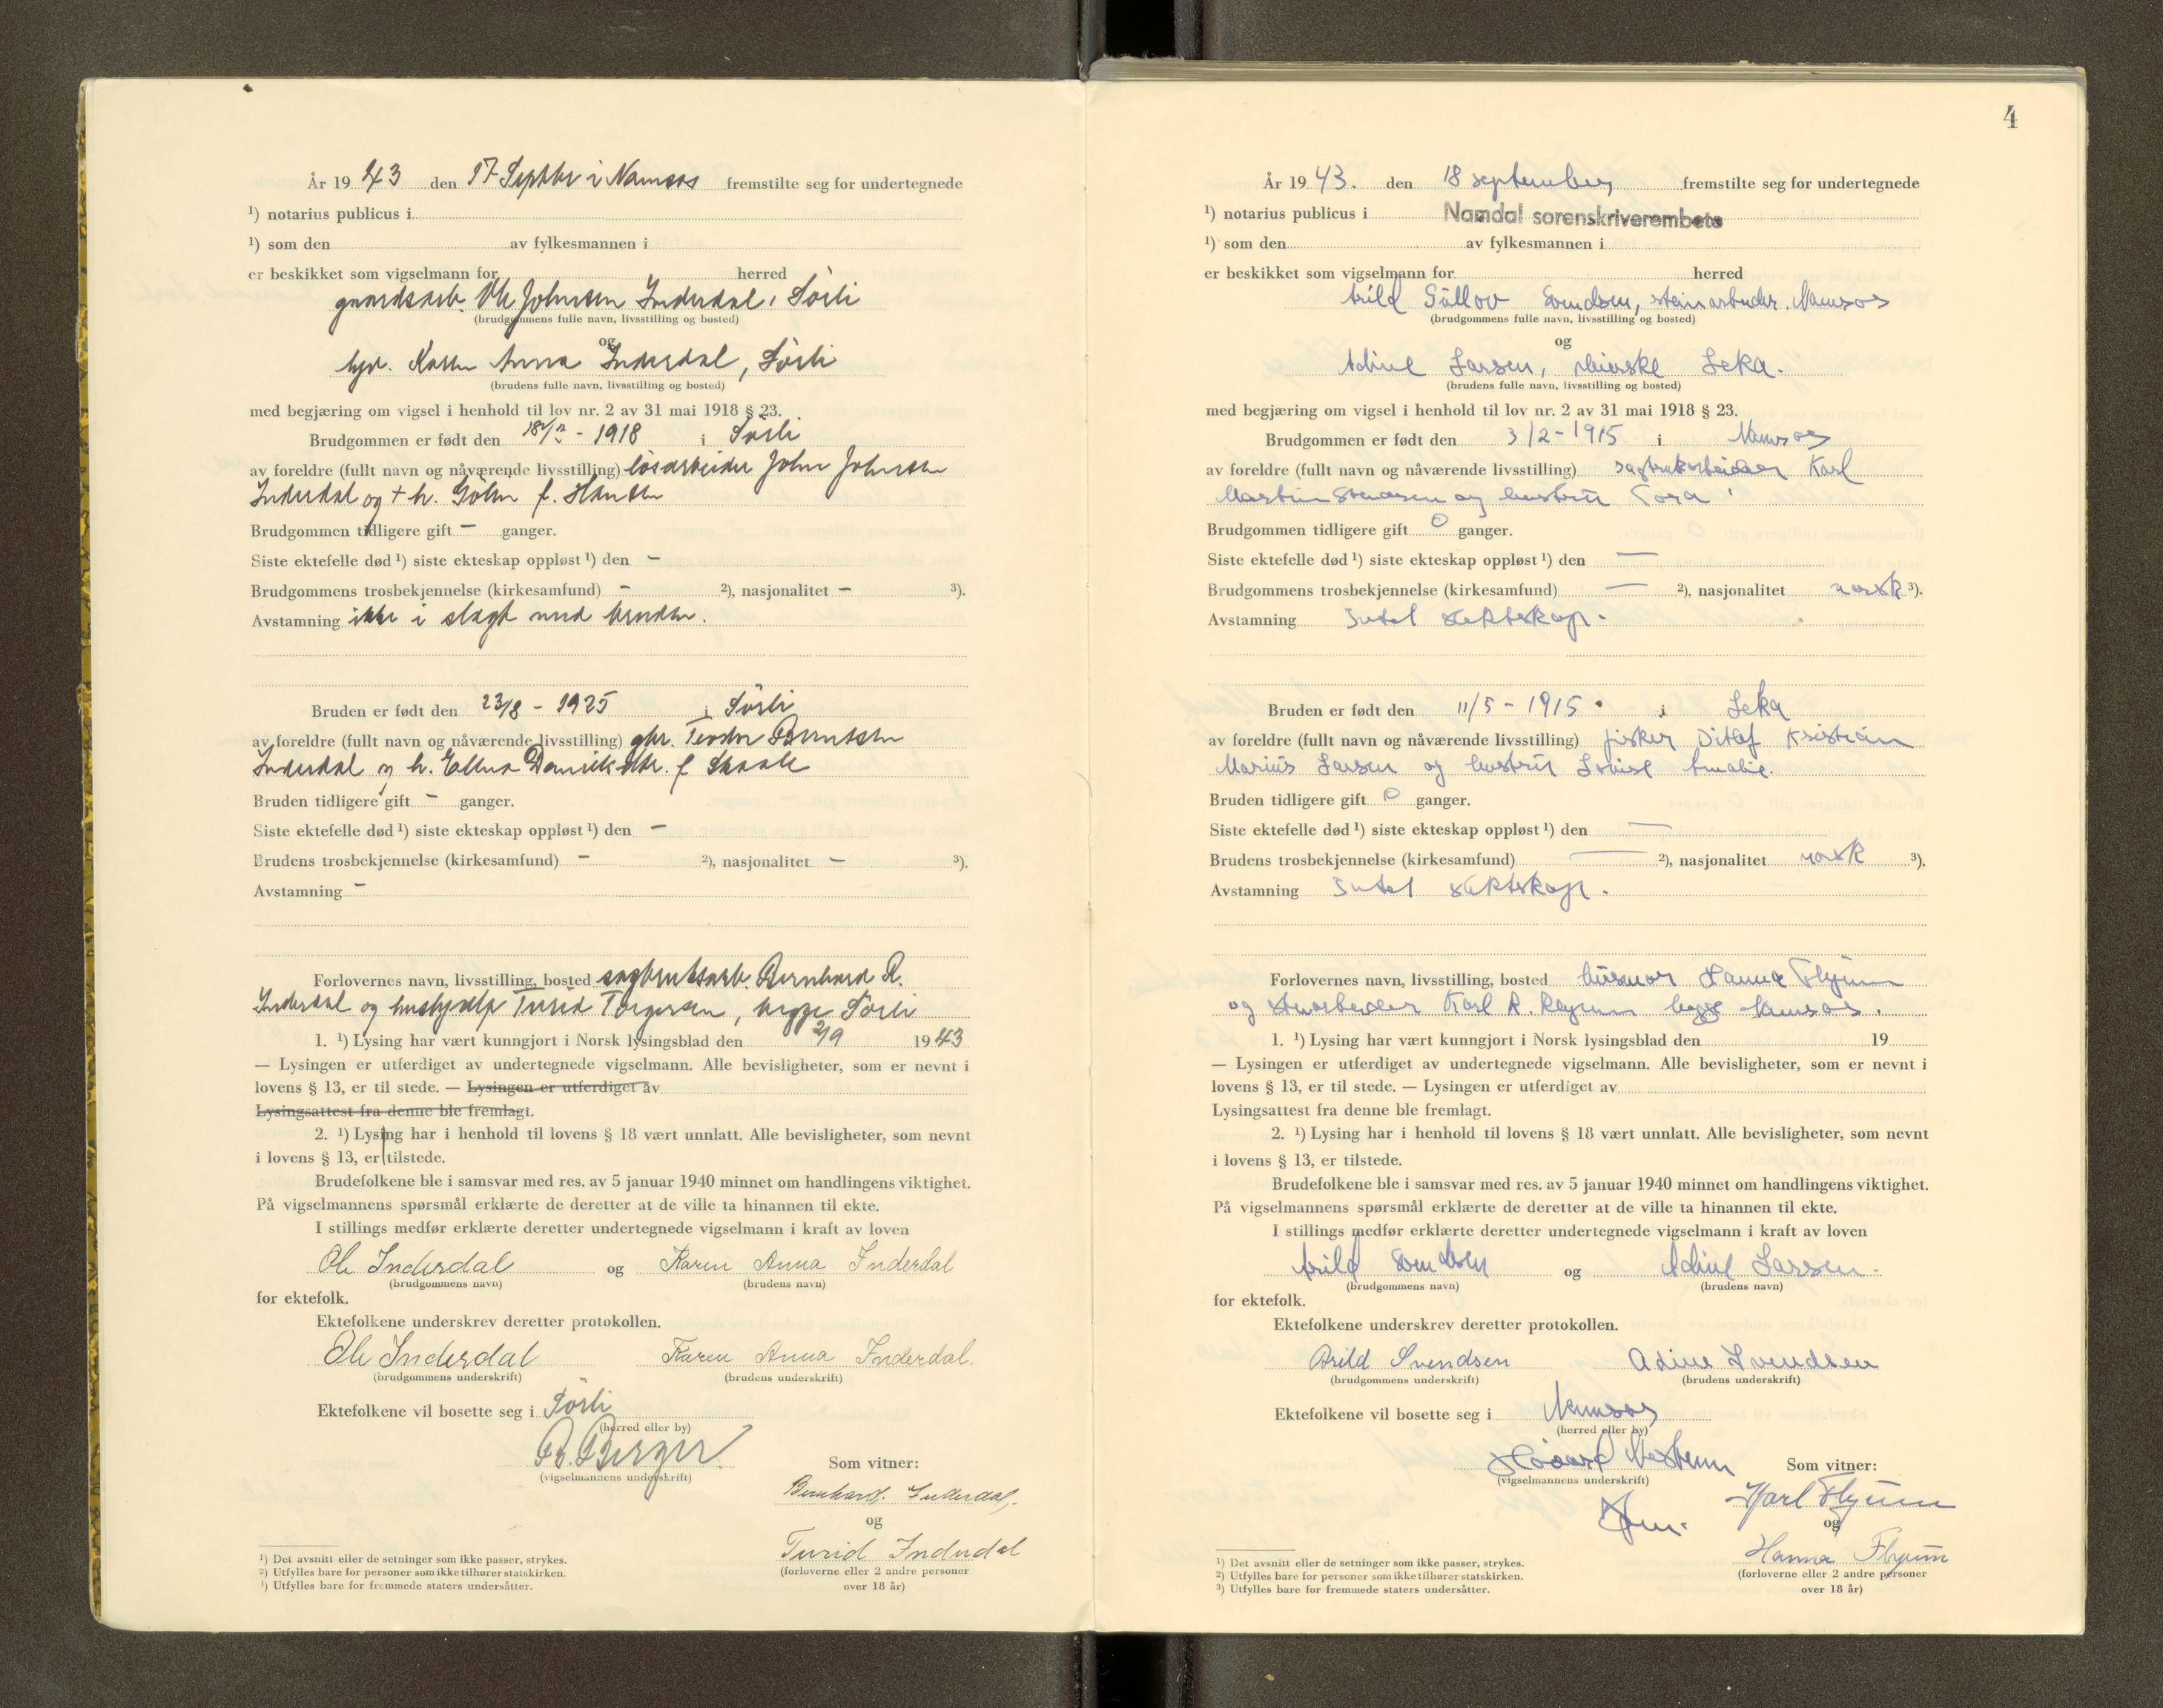 År 19 43 den 17 Septbr i Namsos fremstilte seg for undertegnede
¹) notarius publicus i
¹) som den av fylkesmannen i
er beskikket som vigselmann for herred
gaardsarb. Ole Johnsen Inderdal, Sörli
(brudgommens fulle navn, livsstilling og bosted)
og
Karen Anna Inderdal, Sörli
(brudens fulle navn, livsstilling og bosted)
med begjæring om vigsel i henhold til lov nr. 2 av 31 mai 1918 § 23.
Brudgommen er født den - 1918 i Sörli
av foreldre (fullt navn og nåværende livsstilling) lösarbeider John Johnsen
Inderdal og + h. f. Hansen
Brudgommen tidligere gift – ganger.
Siste ektefelle død ¹) siste ekteskap oppløst ¹) den –
Brudgommens trosbekjennelse (kirkesamfund) – ²), nasjonalitet – ³).
Avstamning ikke i slegt med bruden.
Bruden er født den 23/8 - 1925 i Sörli
av foreldre (fullt navn og nåværende livsstilling) gbr. Teodor Berntsen
Inderdal og h. Ellina f.
Bruden tidligere gift – ganger.
Siste ektefelle død ¹) siste ekteskap oppløst ¹) den –
Brudens trosbekjennelse (kirkesamfund) – ²), nasjonalitet – ³).
Avstamning –
Forlovernes navn, livsstilling, bosted sagbruksarb. Bernhard R.
Inderdal og hushjelp Turid Torgersen, begge Sörli
1. ¹) Lysing har vært kunngjort i Norsk lysingsblad den 2/9 19 43
— Lysingen er utferdiget av undertegnede vigselmann. Alle bevisligheter, som er nevnt i
lovens § 13, er til stede. — Lysingen er utferdiget av
Lysingsattest fra denne ble fremlagt.
2. ¹) Lysing har i henhold til lovens § 18 vært unnlatt. Alle bevisligheter, som nevnt
i lovens § 13, er tilstede.
Brudefolkene ble i samsvar med res. av 5 januar 1940 minnet om handlingens viktighet.
På vigselmannens spørsmål erklærte de deretter at de ville ta hinannen til ekte.
I stillings medfør erklærte deretter undertegnede vigselmann i kraft av loven
Ole Inderdal og Karen Anna Inderdal
(brudgommens navn) (brudens navn)
for ektefolk.
Ektefolkene underskrev deretter protokollen.
Ole Inderdal Karen Anna Inderdal.
(brudgommens underskrift) (brudens underskrift)
Ektefolkene vil bosette seg i Sörli
(herred eller by)
B. Berger
(vigselmannens underskrift)
Som vitner:
Bernhard. Inderdal.
og
Turid Inderdal
(forloverne eller 2 andre personer
over 18 år)
¹) Det avsnitt eller de setninger som ikke passer, strykes.
²) Utfylles bare for personer som ikke tilhører statskirken.
³) Utfylles bare for fremmede staters undersåtter.
4
År 19 43. den 18 september fremstilte seg for undertegnede
¹) notarius publicus i Namdal sorenskriverembete
¹) som den av fylkesmannen i
er beskikket som vigselmann for herred
Arild Svendsen, steinarbeider. Namsos
(brudgommens fulle navn, livsstilling og bosted)
og
Adine Larsen, Leka.
(brudens fulle navn, livsstilling og bosted)
med begjæring om vigsel i henhold til lov nr. 2 av 31 mai 1918 § 23.
Brudgommen er født den 3/2 - 1915 i Namsos
av foreldre (fullt navn og nåværende livsstilling) sagbruksarbeider Karl
Martin Svendsen og hustru Tora
Brudgommen tidligere gift 0 ganger.
Siste ektefelle død ¹) siste ekteskap oppløst ¹) den —
Brudgommens trosbekjennelse (kirkesamfund) — ²), nasjonalitet norsk ³).
Avstamning Intet slektskap.
Bruden er født den 11/5 - 1915 i Leka
av foreldre (fullt navn og nåværende livsstilling) fisker Ditlef Kristian
Marius Larsen og hustru Lovise Amalie.
Bruden tidligere gift 0 ganger.
Siste ektefelle død ¹) siste ekteskap oppløst ¹) den —
Brudens trosbekjennelse (kirkesamfund) — ²), nasjonalitet norsk ³).
Avstamning Intet slektskap.
Forlovernes navn, livsstilling, bosted husmor Hanna Flyum
og Karl R. Flyum begge Namsos.
1. ¹) Lysing har vært kunngjort i Norsk lysingsblad den 19
— Lysingen er utferdiget av undertegnede vigselmann. Alle bevisligheter, som er nevnt i
lovens § 13, er til stede. — Lysingen er utferdiget av
Lysingsattest fra denne ble fremlagt.
2. ¹) Lysing har i henhold til lovens § 18 vært unnlatt. Alle bevisligheter, som nevnt
i lovens § 13, er tilstede.
Brudefolkene ble i samsvar med res. av 5 januar 1940 minnet om handlingens viktighet.
På vigselmannens spørsmål erklærte de deretter at de ville ta hinannen til ekte.
I stillings medfør erklærte deretter undertegnede vigselmann i kraft av loven
Arild Svendsen og Adine Larsen.
(brudgommens navn) (brudens navn)
for ektefolk.
Ektefolkene underskrev deretter protokollen.
Arild Svendsen Adine Svendsen
(brudgommens underskrift) (brudens underskrift)
Ektefolkene vil bosette seg i Namsos
(herred eller by)
(vigselmannens underskrift)
Som vitner:
Karl Flyum
og
Hanna Flyum
(forloverne eller 2 andre personer
over 18 år)
¹) Det avsnitt eller de setninger som ikke passer, strykes.
²) Utfylles bare for personer som ikke tilhører statskirken.
³) Utfylles bare for fremmede staters undersåtter.